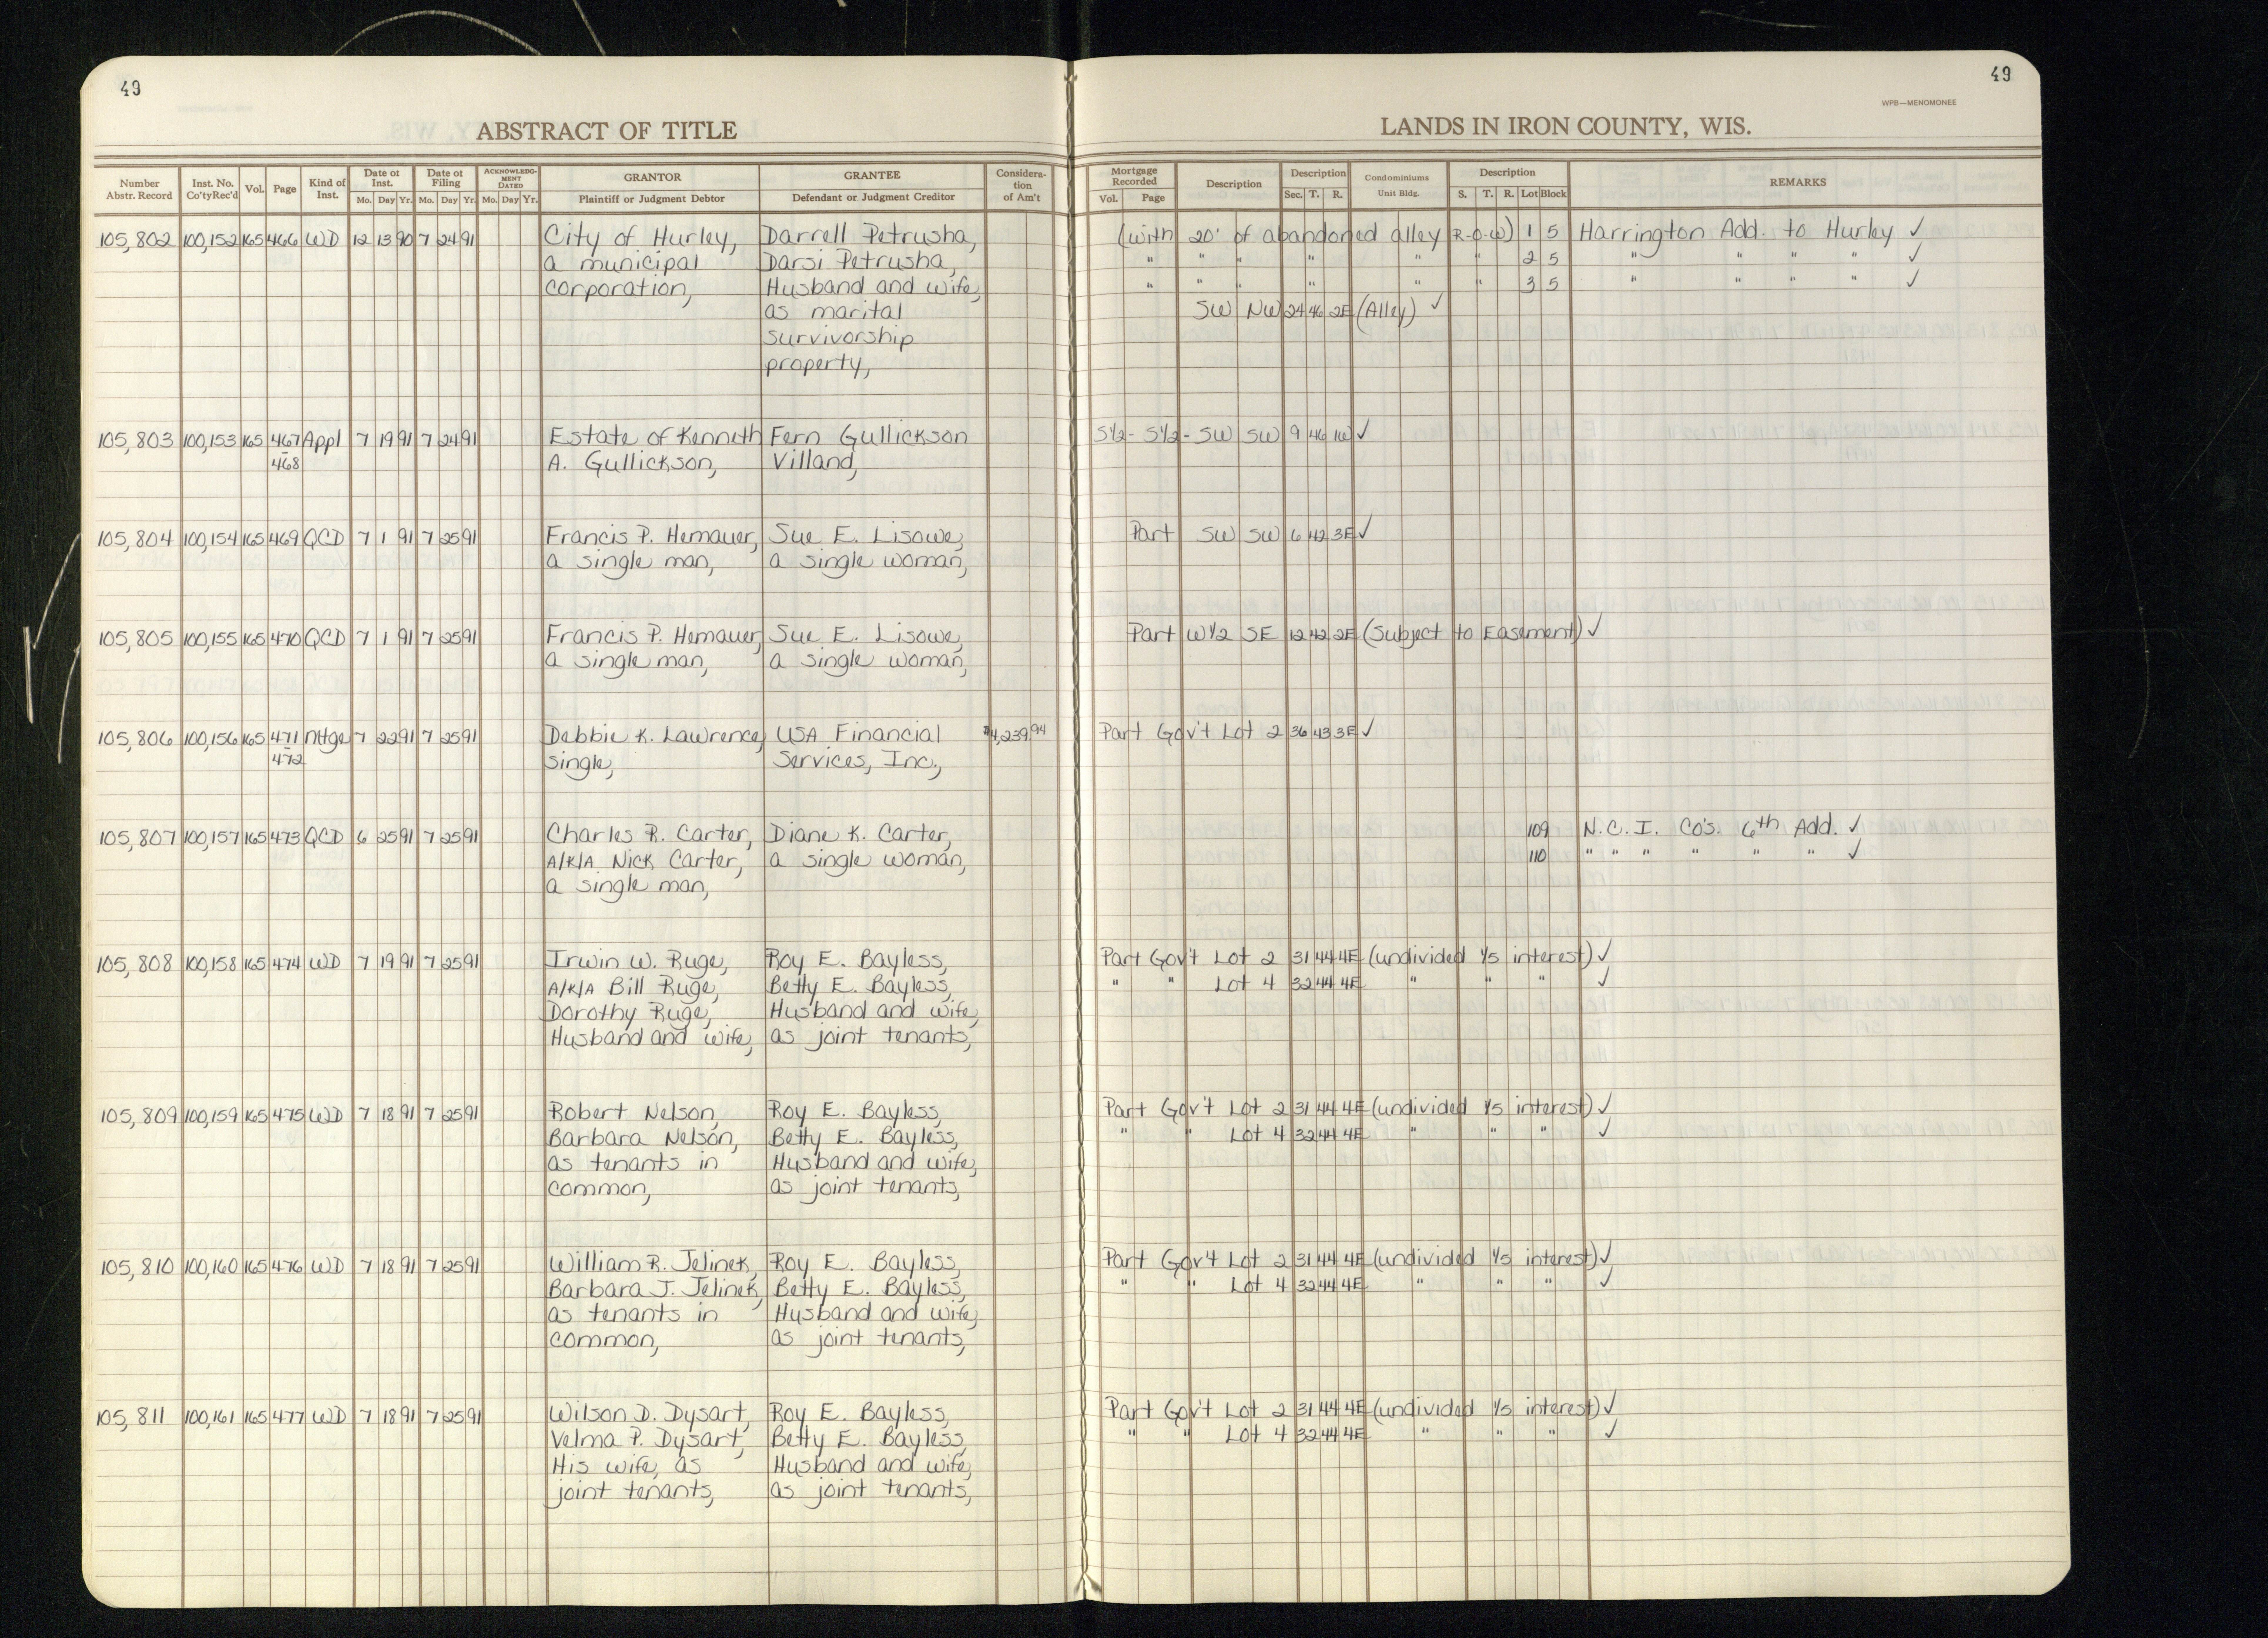 49
49
WPB—MENOMONEE
ABSTRACT OF TITLE
LANDS IN IRON COUNTY, WIS.
Number Abstr. Record | Inst. No. Co'tyRec'd | Vol. | Page | Kind of Inst. | Date of Inst. Mo. Day Yr. | Date of Filing Mo. Day Yr. | ACKNOWLEDGMENT DATED Mo. Day Yr. | GRANTOR Plaintiff or Judgment Debtor | GRANTEE Defendant or Judgment Creditor | Consideration of Am't | Mortgage Recorded Vol. Page | Description | Description Sec. T. R. | Condominiums Unit Bldg. | Description S. T. R. Lot Block | REMARKS
105,802 100,152 165 466 WD 12 13 90 7 24 91 City of Hurley, Darrell Petrusha, (with 20' of abandoned alley R-O-W) 1 5 Harrington Add. to Hurley ✓
a municipal Darsi Petrusha, " " " " " " 2 5 " " " " ✓
corporation, Husband and wife, " " " " " " 3 5 " " " " ✓
as marital SW NW 24 46 2E (Alley) ✓
survivorship
property,
105,803 100,153 165 467 Appl 7 19 91 7 24 91 Estate of Kenneth Fern Gullickson S1/2 - S1/2 - SW SW 9 46 1W ✓
- 468 A. Gullickson, Villand,
105,804 100,154 165 469 QCD 7 1 91 7 25 91 Francis P. Hemauer, Sue E. Lisowe, Part SW SW 6 42 3E ✓
a single man, a single woman,
105,805 100,155 165 470 QCD 7 1 91 7 25 91 Francis P. Hemauer, Sue E. Lisowe, Part W1/2 SE 12 42 2E (Subject to Easement) ✓
a single man, a single woman,
105,806 100,156 165 471 Mtge 7 22 91 7 25 91 Debbie K. Lawrence, USA Financial $4,239.94 Part Gov't Lot 2 36 43 3E ✓
- 472 single, Services, Inc.,
105,807 100,157 165 473 QCD 6 25 91 7 25 91 Charles R. Carter, Diane K. Carter, 109 N.C.I. Co's. 6th Add. ✓
A/K/A Nick Carter, a single woman, 110 " " " " " " ✓
a single man,
105,808 100,158 165 474 WD 7 19 91 7 25 91 Irwin W. Ruge, Roy E. Bayless, Part Gov't Lot 2 31 44 4E (undivided 1/5 interest) ✓
A/K/A Bill Ruge, Betty E. Bayless, " " Lot 4 32 44 4E " " " ✓
Dorothy Ruge, Husband and wife,
Husband and wife, as joint tenants,
105,809 100,159 165 475 WD 7 18 91 7 25 91 Robert Nelson, Roy E. Bayless, Part Gov't Lot 2 31 44 4E (undivided 1/5 interest) ✓
Barbara Nelson, Betty E. Bayless, " " Lot 4 32 44 4E " " " ✓
as tenants in Husband and wife,
common, as joint tenants,
105,810 100,160 165 476 WD 7 18 91 7 25 91 William R. Jelinek, Roy E. Bayless, Part Gov't Lot 2 31 44 4E (undivided 1/5 interest) ✓
Barbara J. Jelinek, Betty E. Bayless, " " Lot 4 32 44 4E " " " ✓
as tenants in Husband and wife,
common, as joint tenants,
105,811 100,161 165 477 WD 7 18 91 7 25 91 Wilson D. Dysart, Roy E. Bayless, Part Gov't Lot 2 31 44 4E (undivided 1/5 interest) ✓
Velma P. Dysart, Betty E. Bayless, " " Lot 4 32 44 4E " " " ✓
His wife, as Husband and wife,
joint tenants, as joint tenants,